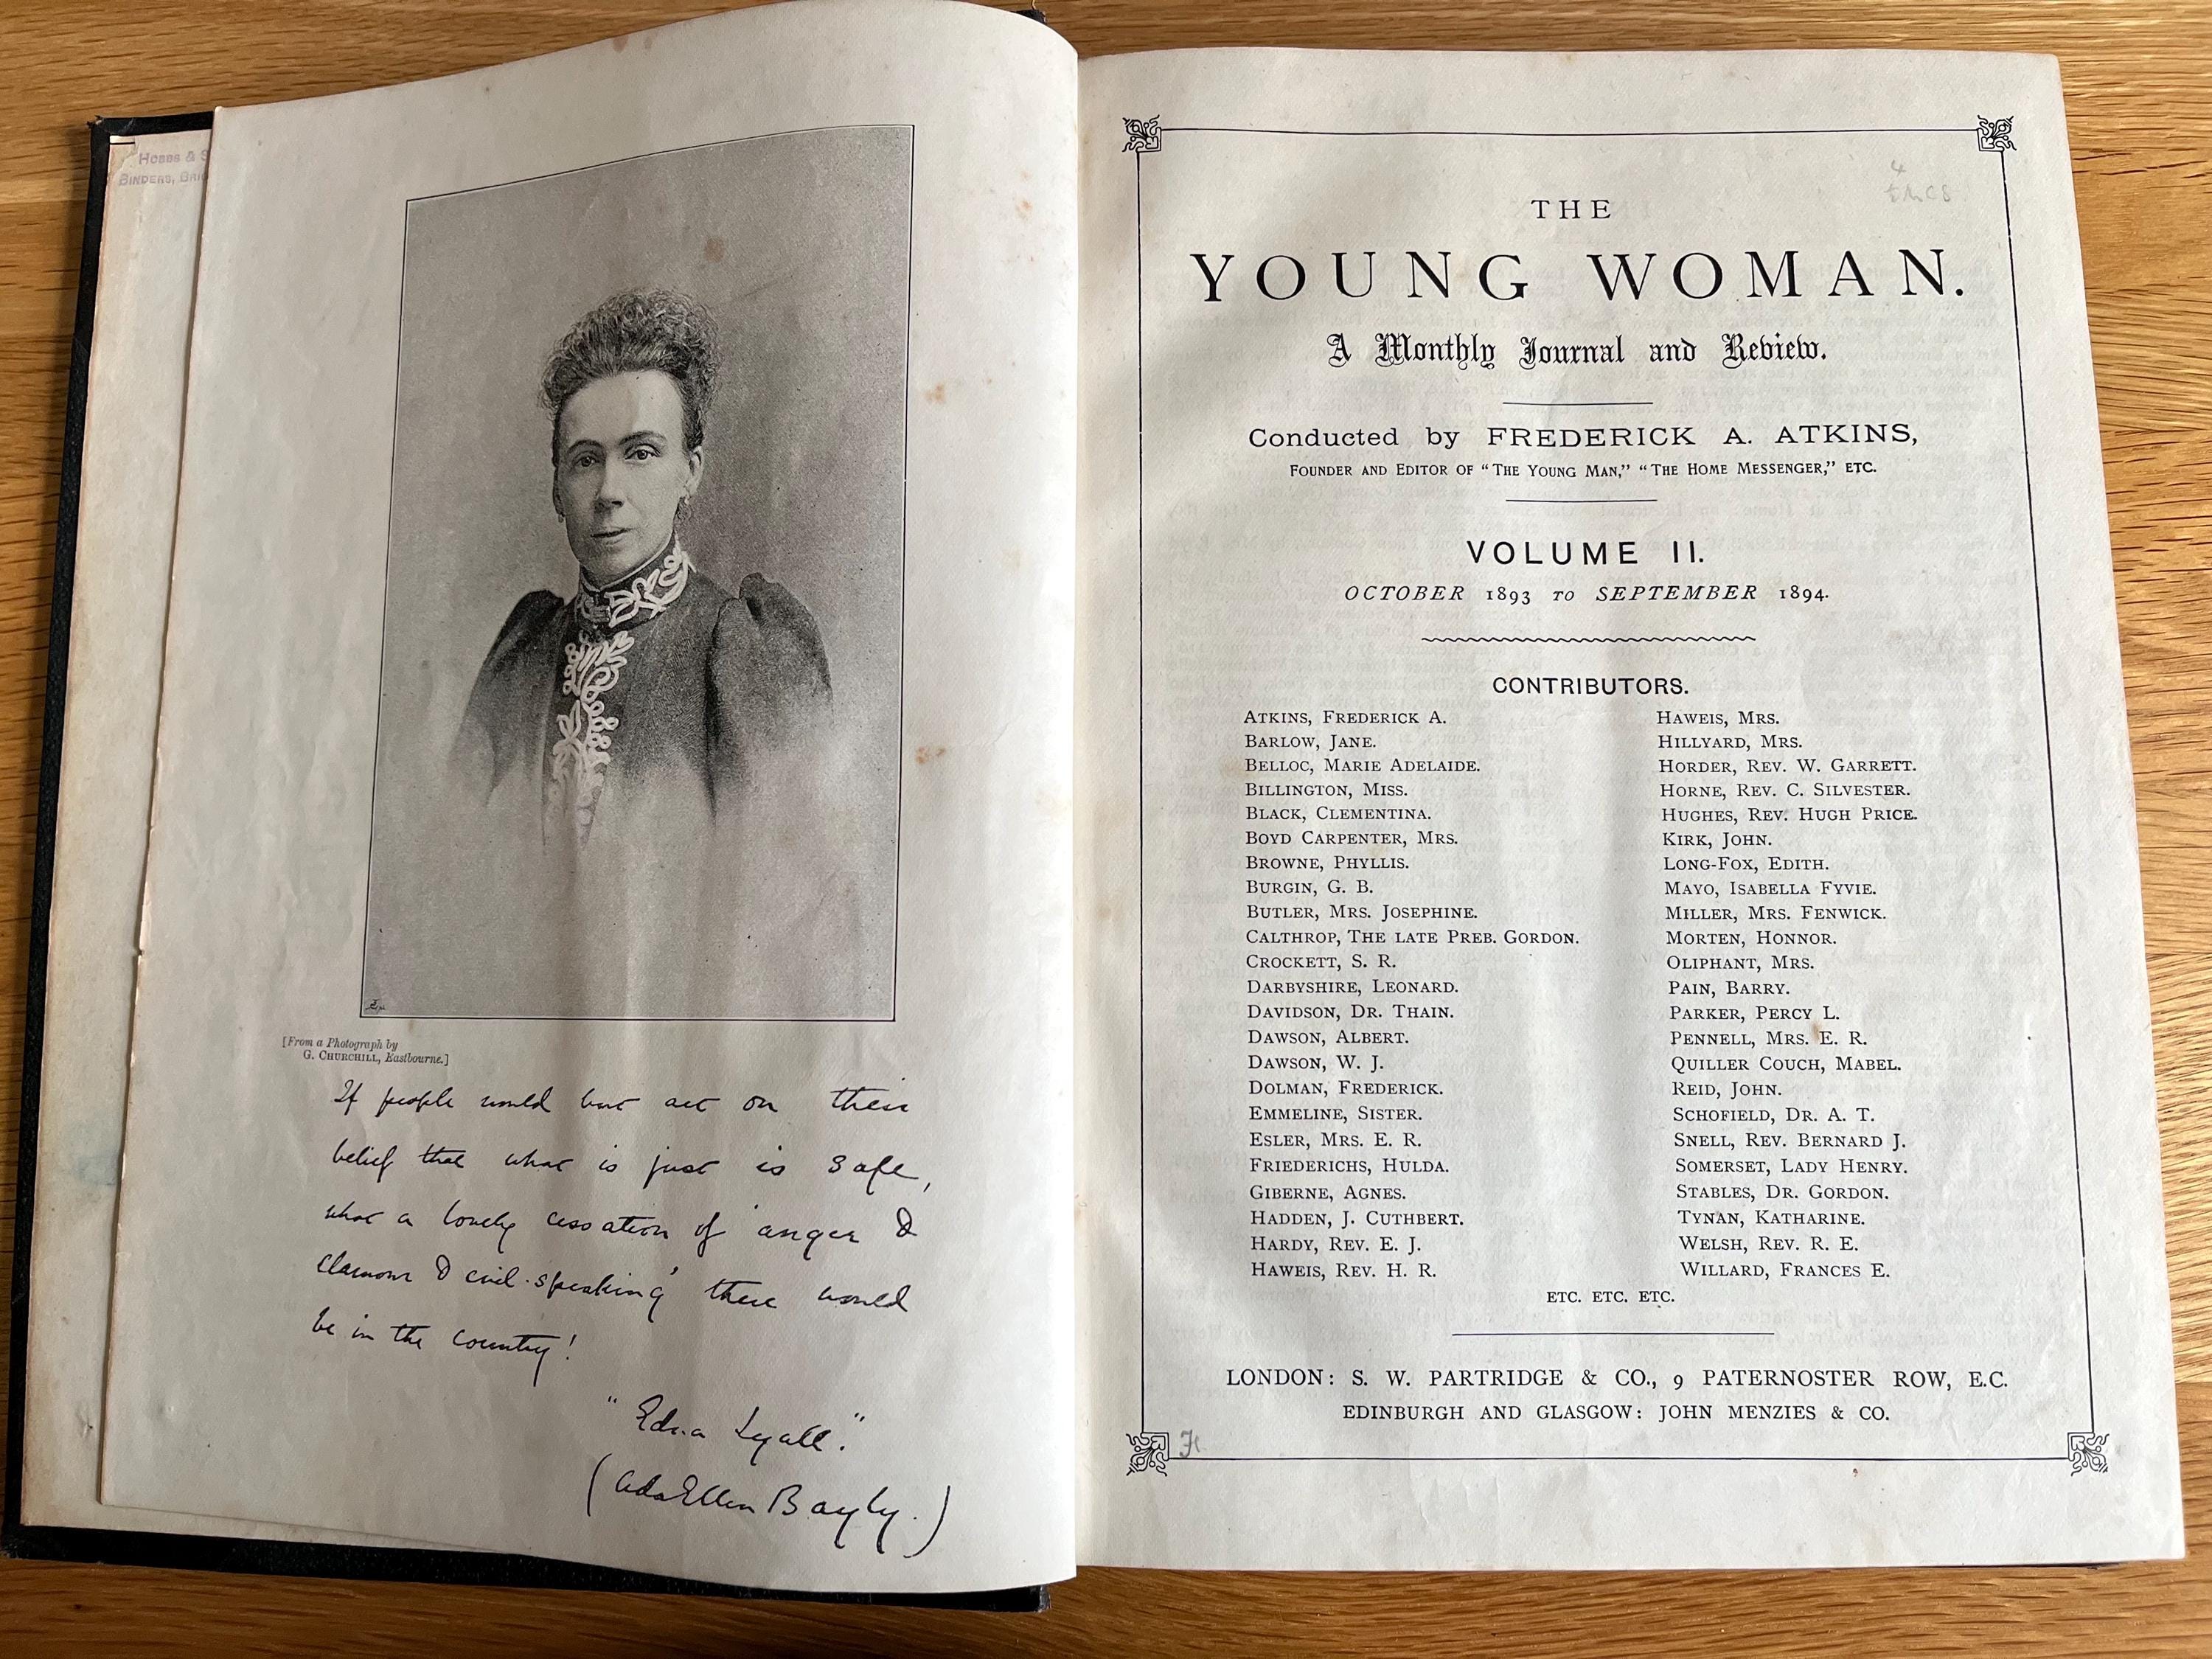 Hobbs & S
Binders, Brig
[From a Photograph by
G. CHURCHILL, Eastbourne.]
If people would but act on their
belief that what is just is safe,
what a lovely cessation of 'anger &
clamour & evil-speaking' there would
be in the country!
"Edna Lyall."
(Ada Ellen Bayly.)
4
THE
YOUNG WOMAN.
A Monthly Journal and Review.
Conducted by FREDERICK A. ATKINS,
FOUNDER AND EDITOR OF "THE YOUNG MAN," "THE HOME MESSENGER," ETC.
VOLUME II.
OCTOBER 1893 TO SEPTEMBER 1894.
CONTRIBUTORS.
ATKINS, FREDERICK A.
BARLOW, JANE.
BELLOC, MARIE ADELAIDE.
BILLINGTON, MISS.
BLACK, CLEMENTINA.
BOYD CARPENTER, MRS.
BROWNE, PHYLLIS.
BURGIN, G. B.
BUTLER, MRS. JOSEPHINE.
CALTHROP, THE LATE PREB. GORDON.
CROCKETT, S. R.
DARBYSHIRE, LEONARD.
DAVIDSON, DR. THAIN.
DAWSON, ALBERT.
DAWSON, W. J.
DOLMAN, FREDERICK.
EMMELINE, SISTER.
ESLER, MRS. E. R.
FRIEDERICHS, HULDA.
GIBERNE, AGNES.
HADDEN, J. CUTHBERT.
HARDY, REV. E. J.
HAWEIS, REV. H. R.
HAWEIS, MRS.
HILLYARD, MRS.
HORDER, REV. W. GARRETT.
HORNE, REV. C. SILVESTER.
HUGHES, REV. HUGH PRICE.
KIRK, JOHN.
LONG-FOX, EDITH.
MAYO, ISABELLA FYVIE.
MILLER, MRS. FENWICK.
MORTEN, HONNOR.
OLIPHANT, MRS.
PAIN, BARRY.
PARKER, PERCY L.
PENNELL, MRS. E. R.
QUILLER COUCH, MABEL.
REID, JOHN.
SCHOFIELD, DR. A. T.
SNELL, REV. BERNARD J.
SOMERSET, LADY HENRY.
STABLES, DR. GORDON.
TYNAN, KATHARINE.
WELSH, REV. R. E.
WILLARD, FRANCES E.
ETC. ETC. ETC.
LONDON: S. W. PARTRIDGE & CO., 9 PATERNOSTER ROW, E.C.
EDINBURGH AND GLASGOW: JOHN MENZIES & CO.